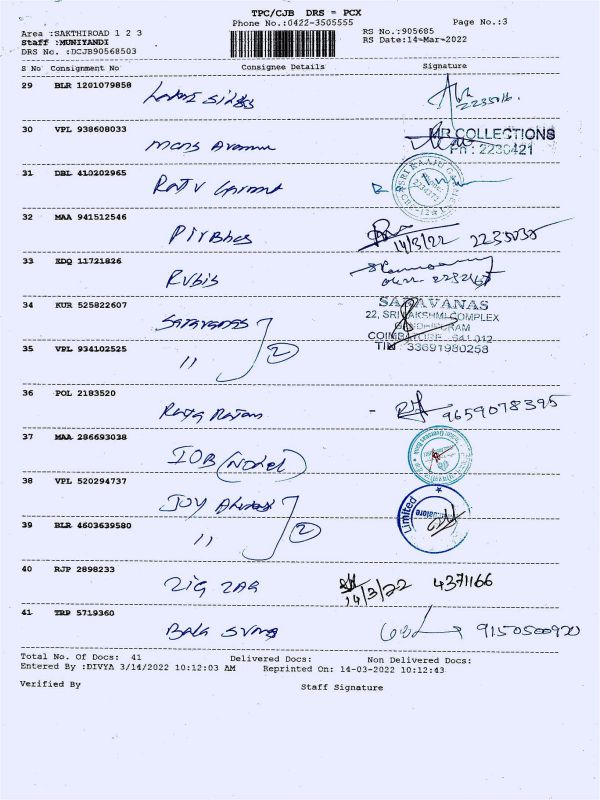 TPC/CJB DRS = PCX
Phone No.:0422-3505555
Page No.:3
Area :SAKTHIROAD 1 2 3
RS No.:905685
Staff :MUNIYANDI
RS Date:14-Mar-2022
DRS No. :DCJB90568503
S No Consignment No Consignee Details Signature
29 BLR 1201079858
2235016.
30 VPL 938608033
MR COLLECTIONS
PH : 2230421
31 DBL 410202965
32 MAA 941512546
14/3/22 2235035
33 EDQ 11721826
Rubis
34 KUR 525822607
SARAVANAS
22, SRI LAKSHMI COMPLEX
COIMBATORE - 641 012
TIN 33691980258
35 VPL 934102525
11 2
36 POL 2183520
9659078395
37 MAA 286693038
IOB
38 VPL 520294737
JOY
Limited
39 BLR 4603639580
11 2
40 RJP 2898233
ZIG ZAG 14/3/22 4371166
41 TRP 5719360
9150500920
Total No. Of Docs: 41 Delivered Docs: Non Delivered Docs:
Entered By :DIVYA 3/14/2022 10:12:03 AM Reprinted On: 14-03-2022 10:12:43
Verified By Staff Signature